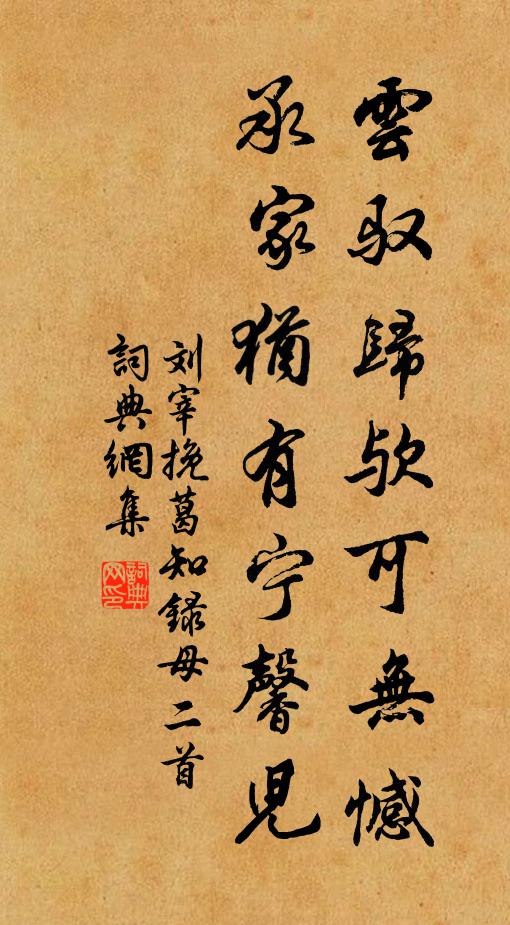 雲驭歸欤可無憾
承家猶有宁馨兒
刘宰挽葛知録母二首
詞典網集
詞典
网印